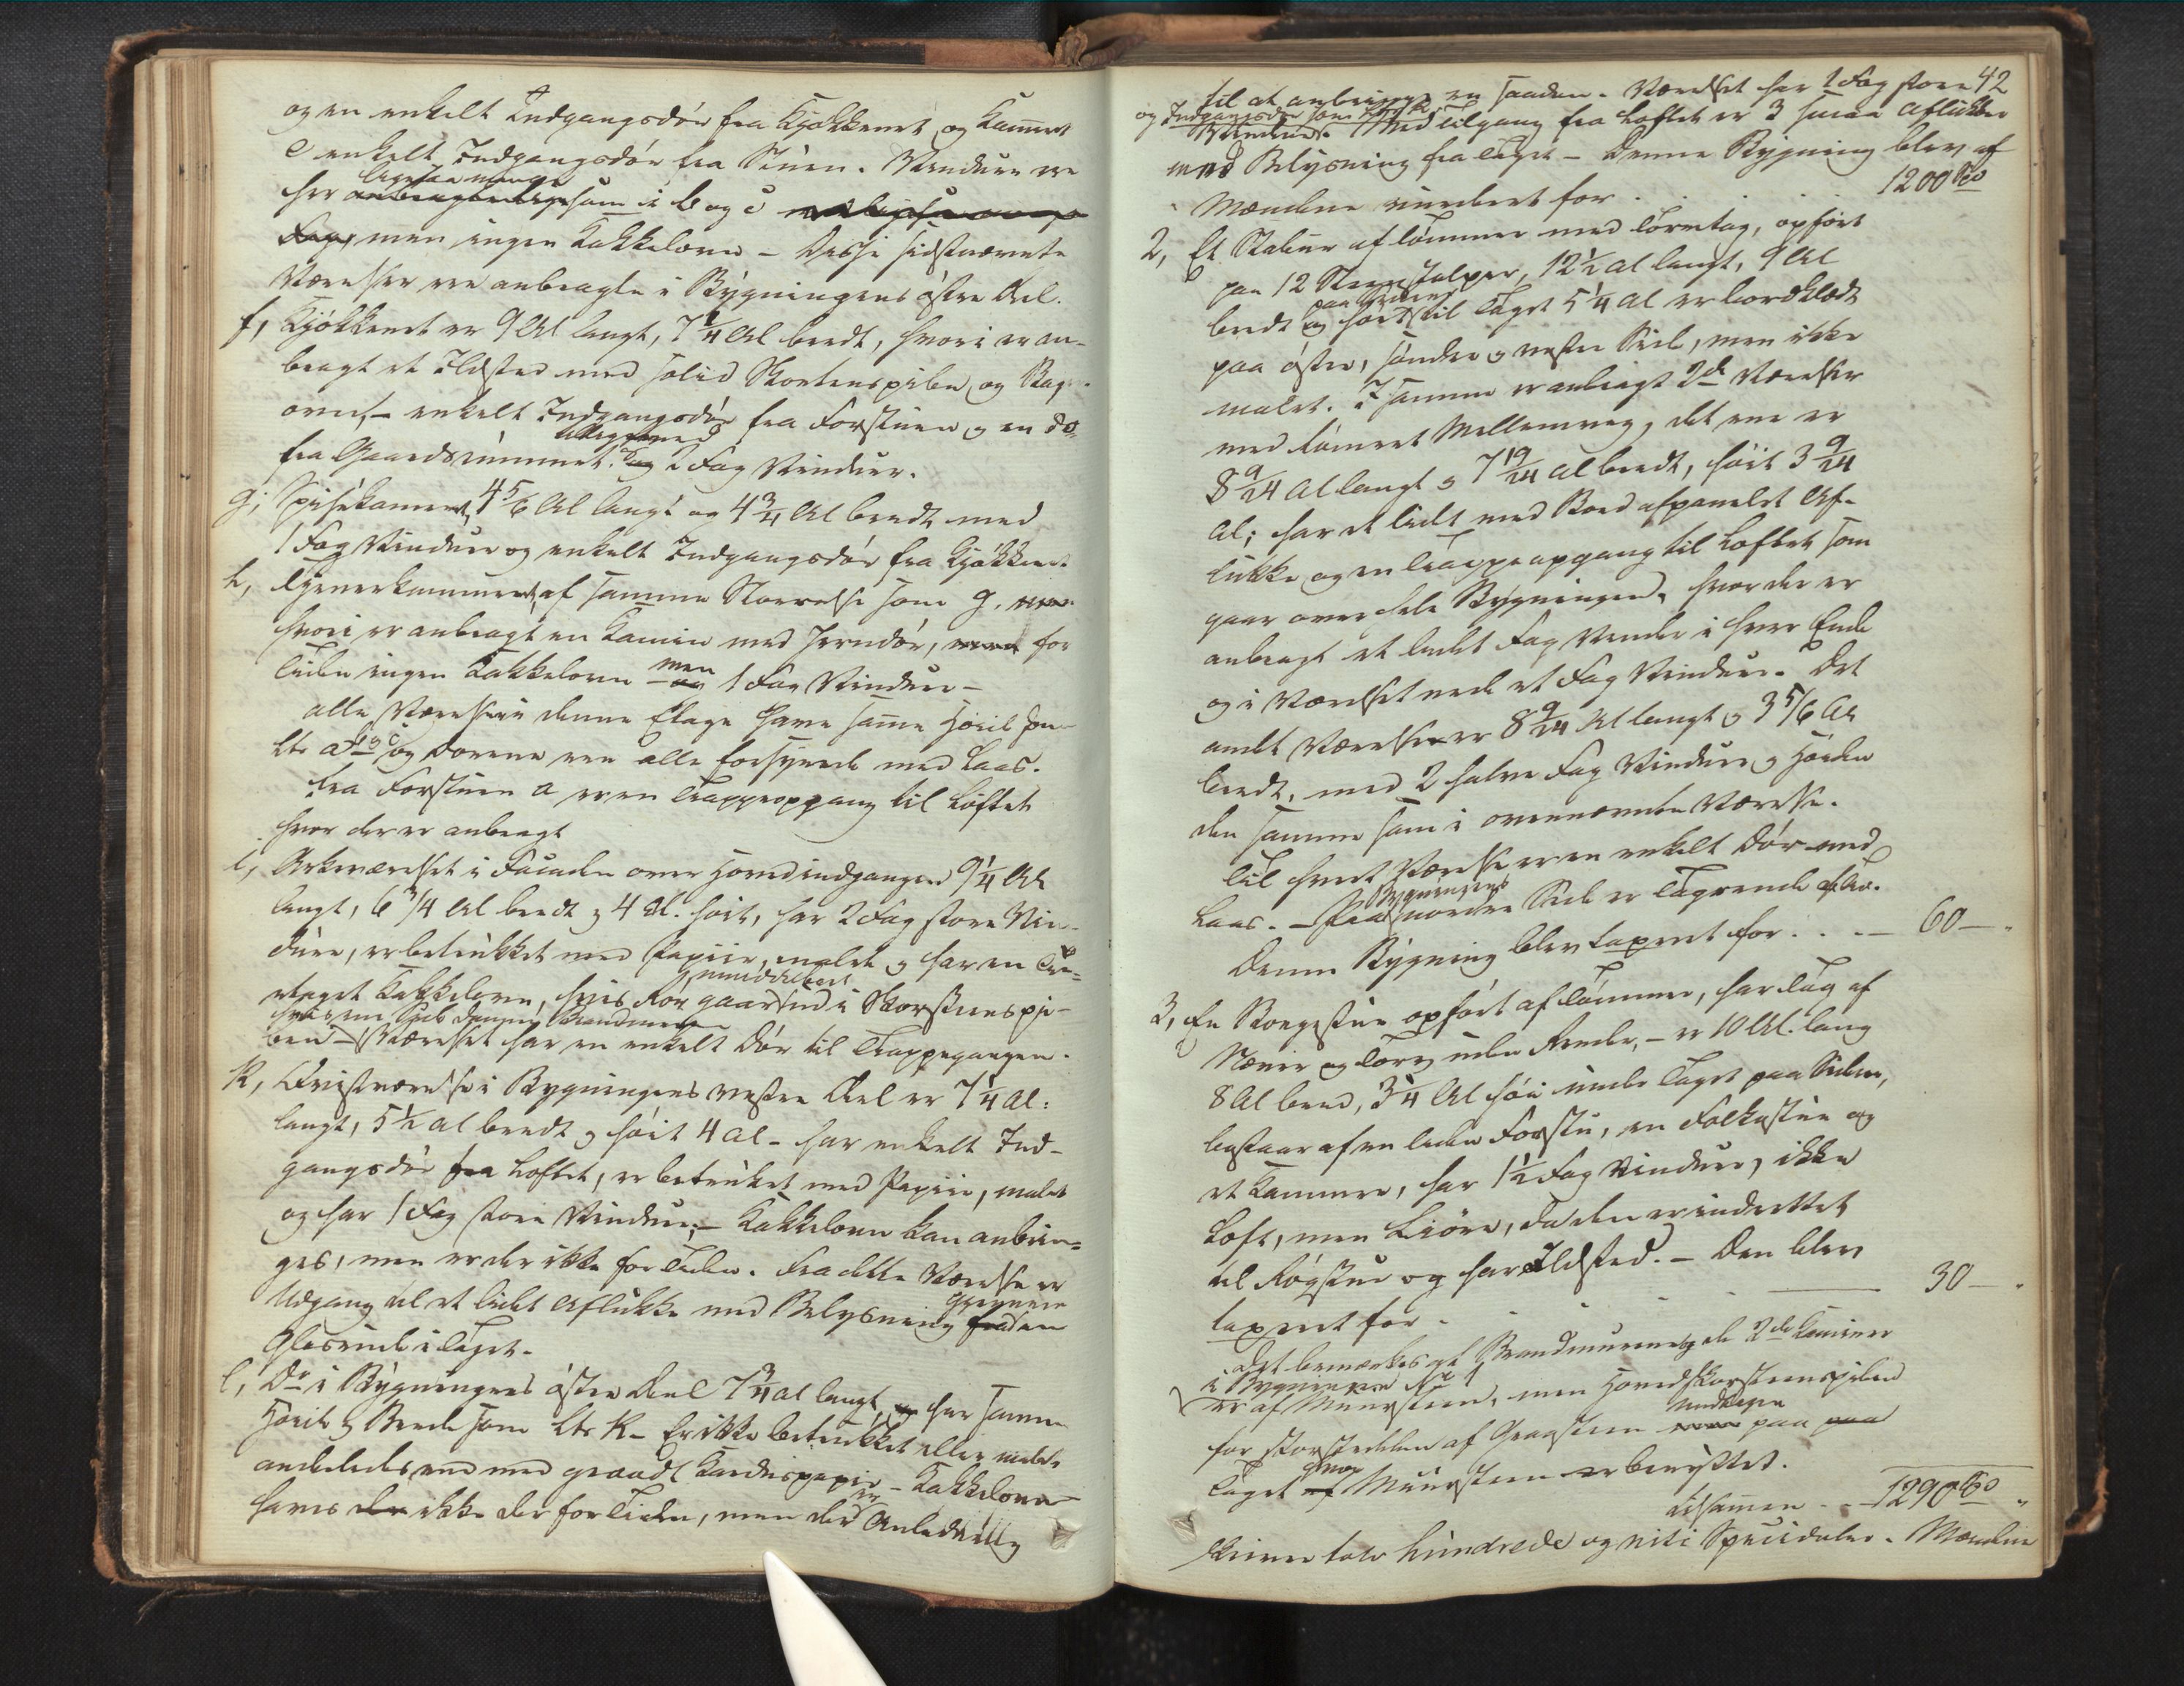 og en enkelt Indgangsdör fra Kjökkenet og Kamret
e enkelt Indgangsdör fra Stuen. Vinduer ere
ligesaa mange
her anbragte ligesom i b og c
Fag, men ingen Kakkelovn – Disse sidstnævnte
Værelser ere anbragte i Bygningens östre Deel.
f, Kjökkenet er 9 Al langt, 7 1/4 Al bredt, hvori er an-
bragt et Ildsted med solid Skorstenspibe og Bag-
ovn, – enkelt Indgangsdör fra Forstuen og en do
tilligemed
fra Gaardsrummet. og 2 Fag Vinduer.
g, Spisekamret, 4 5/6 Al langt og 4 3/4 Al bredt med
1 Fag Vinduer og enkelt Indgangsdör fra Kjökkenet
h, Pigekammeret, af samme Störrelse som g. men
hvori er anbragt en Kamin med Jerndör, men for
Tiden ingen Kakkelovn – men og 1 Fag Vinduer –
alle Værelser i denne Etage have samme Höide som
Ltr a og Dörene ere alle forsynede med Laas.
Fra Forstuen a er en Trappeopgang til Loftet
hvor der er anbragt
i, Arkeværelset i Facaden over Hovedindgangen 9 1/4 Al
langt, 6 3/4 Al bredt og 4 Al. höit, har 2 Fag store Vin-
duer, er betrukket med Papiir, malet og har en Tre-
umiddelbart
etages Kakkelovn, hvis Rör gaar ind i Skorsteenspi-
hvis ene Side danner Brandmuur
ben – Værelset har en enkelt Dör til Trappegangen.
k, Qvistværelse i Bygningens vestre Deel er 7 1/4 Al:
langt, 5 1/2 Al bredt og höit 4 Al – har enkelt Ind-
gangsdör fra Loftet, er betrukket med Papiir, malet
og har 1 Fag store Vinduer, – Kakkelovn kan anbrin-
ges, men er der ikke for Tiden. Fra dette Værelse er
gjennem
Udgang til et lidet Aflukke med Belysning fra en
Glasrude i Taget.
l, Do i Bygningens östre Deel 7 3/4 Al langt og har samme
Höide og Brede som Ltr k – Er ikke betrukket eller malet
anderledes end med graadt Kardüspapir – Kakkelovn
er
haves der ikke der for Tiden, men der Anledning
42
til at anbringe en saadan. Værelset har 1 Fag store
og Indgangsdör som Ltr k.
Vinduer. Med Tilgang fra Loftet er 3 smaa Aflukker
med Belysning fra Taget – Denne Bygning blev af
Mændene vurderet for . . . 1200 Spd
2, Et Stabur af Tömmer med Torvtag, opfört
paa 12 Steenstolper, 12 1/2 Al langt, 9 Al
paa Siderne
bredt og höit til Taget 5 1/4 Al er bordklædt
paa östre, söndre og vestre Side, men ikke
malet. I samme er anbragt 2de Værelser
med tömret Mellemvæg, det ene er
8 9/24 Al langt og 7 19/24 Al bredt, höit 3 9/24
Al; har et lidet med Bord afpanelet Af-
lukke og en Trappeopgang til Loftet, som
gaar over hele Bygningen, hvor der er
anbragt et lidet Fag Vinduer i hver Ende
og i Værelset nede et Fag Vinduer. Det
andet Værelse er 8 9/24 Al langt og 3 5/6 Al
bredt, med 2 halve Fag Vinduer og Höiden
den samme som i ovennævnte Værelse.
Til hvert Værelse er en enkelt Dör med
Bygningens
Laas. – Paa nordre Side er Tagrende af Træ.
Denne Bygning blev taxeret for . . . – 60 – „
3, En Borgestue opfört af Tömmer, har Tag af
Næver og Torv uden Render, – er 10 Al. lang
8 Al bred, 3 1/4 Al höi under Taget paa Siden,
bestaar af en liden Forstu, en Folkestue og
et Kammer, har 1 1/2 Fag Vinduer, ikke
Loft, men Liöre, da den er indrettet
til Rögstue og har Ildsted. – Den blev
taxeret for . . . . 30 – „
Det bemærkes at Brandmurene og de 2de Kaminer
i Bygningen No 1
er af Muursteen, men Hovedskorsteenspiben
undtagen
for störstedelen af Graasteen paa
hvor
Taget af Muursteen er benyttet.
tilsammen . . 1290 Spd „
skriver tolv hundrede og niti Speciedaler. Mændene